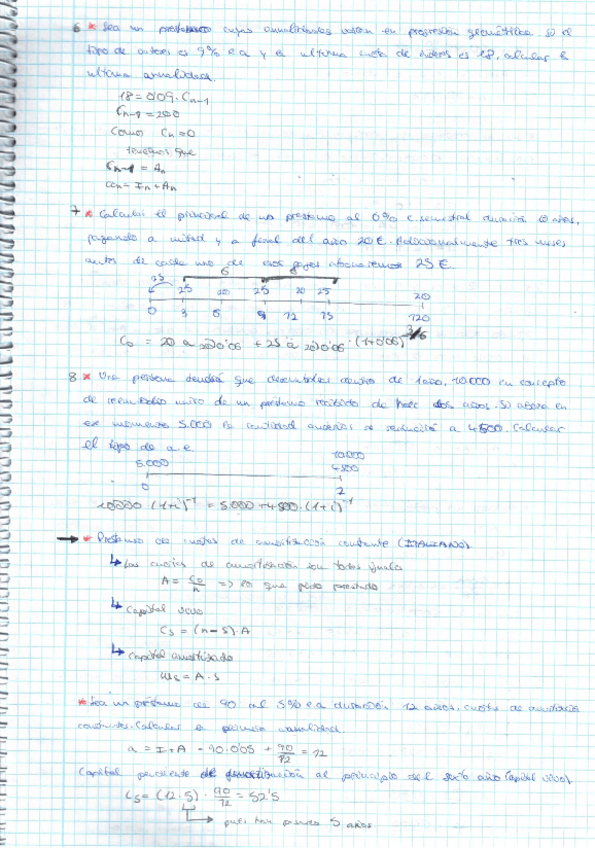 6 * Sea un préstamo cuyas anualidades varían en progresión geométrica. Si el
tipo de interés es 9% e a y la última cuota de interés es 18, calcular la
última anualidad.
18 = 0'09 · Cn-1
Cn-1 = 200
Como Cn = 0
tenemos que
Cn-1 = An
an = In + An
7 * Calcular el principal de un préstamo al 6% e. semestral duración 10 años,
pagando a mitad y a final del año 20 €. Adicionalmente tres meses
antes de cada uno de esos pagos abonaremos 25 €.
6
25
25 20 25 20 25 20
0 3 6 9 12 15 120
C0 = 20 a 20 0'06 + 25 a 20 0'06 · (1+0'06) 3/6
8 * Una persona tendrá que desembolsar dentro de 1 año, 10.000 en concepto
de reembolso único de un préstamo recibido de hace dos años. Si abona en
ese momento 5.000 la cantidad anterior se reducirá a 4500. Calcular
el tipo de a.e.
5.000 10.000
4500
0 1
10000 · (1+i)-1 = 5.000 + 4500 · (1+i)-1
* Préstamo de cuotas de amortización constante (ITALIANO)
Las cuotas de amortización son todas iguales
A = C0/n => lo que pido prestado
Capital vivo
Cs = (n-s) · A
Capital amortizado
ms = A · s
* Sea un préstamo de 90 al 5% e a duración 12 años, cuotas de amortización
constantes. Calcular la primera anualidad.
a = I + A = 90 · 0'05 + 90/12 = 12
Capital pendiente de amortización al principio del sexto año (capital vivo)
C5 = (12-5) · 90/12 = 52'5
pues han pasado 5 años